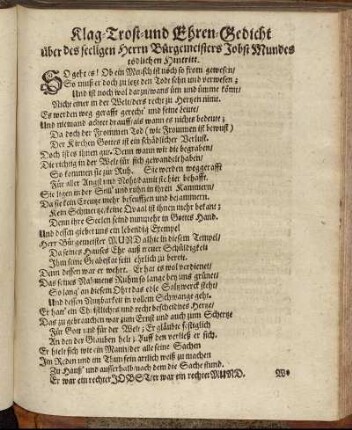 Klag-Trost-und Ehren-Gedicht
über des seeligen Herrn Bürgemeisters Jobst Mundes
tödlichen Hintritt.
SO geht es! Ob ein Mensch ist noch so from gewesen/
So muß er doch zu letzt den Todt sehn und verwesen;
Und ist noch wol darzu/wans üm und ümme könt/
Nicht einer in der Welt/ders recht zu Hertzen nimt.
Es werden weg gerafft gerecht' und feine Leute/
Und niemand achtet drauff/als wann es nichts bedeute;
Da doch der Frommen Tod (wie Frommen ist bewust)
Der Kirchen Gottes ist ein schädlicher Verlust.
Doch ist es ihnen gut. Denn wann wir die begraben/
Die richtig in der Welt für sich gewandelt haben/
So kommen sie zur Ruh. Sie werden weggerafft
Für aller Angst und Noht/damit sie hier behafft.
Sie ligen in der Still' und ruhn in ihren Kammern/
Da sie kein Creutz mehr beseufftzen und bejammern.
Kein Schmertz/keine Qvaal ist ihnen mehr bekant;
Denn ihre Seelen seind nunmehr in Gottes Hand.
Und dessen giebet uns ein lebendig Exempel
Herr Bürgemeister MUND alhie in diesem Tempel/
Da seines Hauses Ehr auß treuer Schüldigkeit
Ihm seine Grabestat sein ehrlich zu bereit.
Dann dessen war er wehrt. Er hat es wol verdienet/
Das seines Nahmens Ruhm so lange bey uns grünet/
So lang' an diesem Ohrt das edle Saltzwerck steht/
Und dessen Nutzbarkeit in vollem Schwange geht.
Er hatt' ein Christlichs und recht bescheidnes Hertz/
Das zu gebrauchen war zum Ernst und auch zum Schertze
Für Gott und für der Welt; Er gläubte festiglich
An den der Glauben helt; Auff den verließ er sich.
Er hielt sich wie ein Mann/der alle seine Sachen
Im Reden und im Thun sein artlich weiß zu machen
Zu Hauß' und ausserhalb nach dem die Sache stund.
Er war ein rechter JOBST/er war ein rechter MUND.